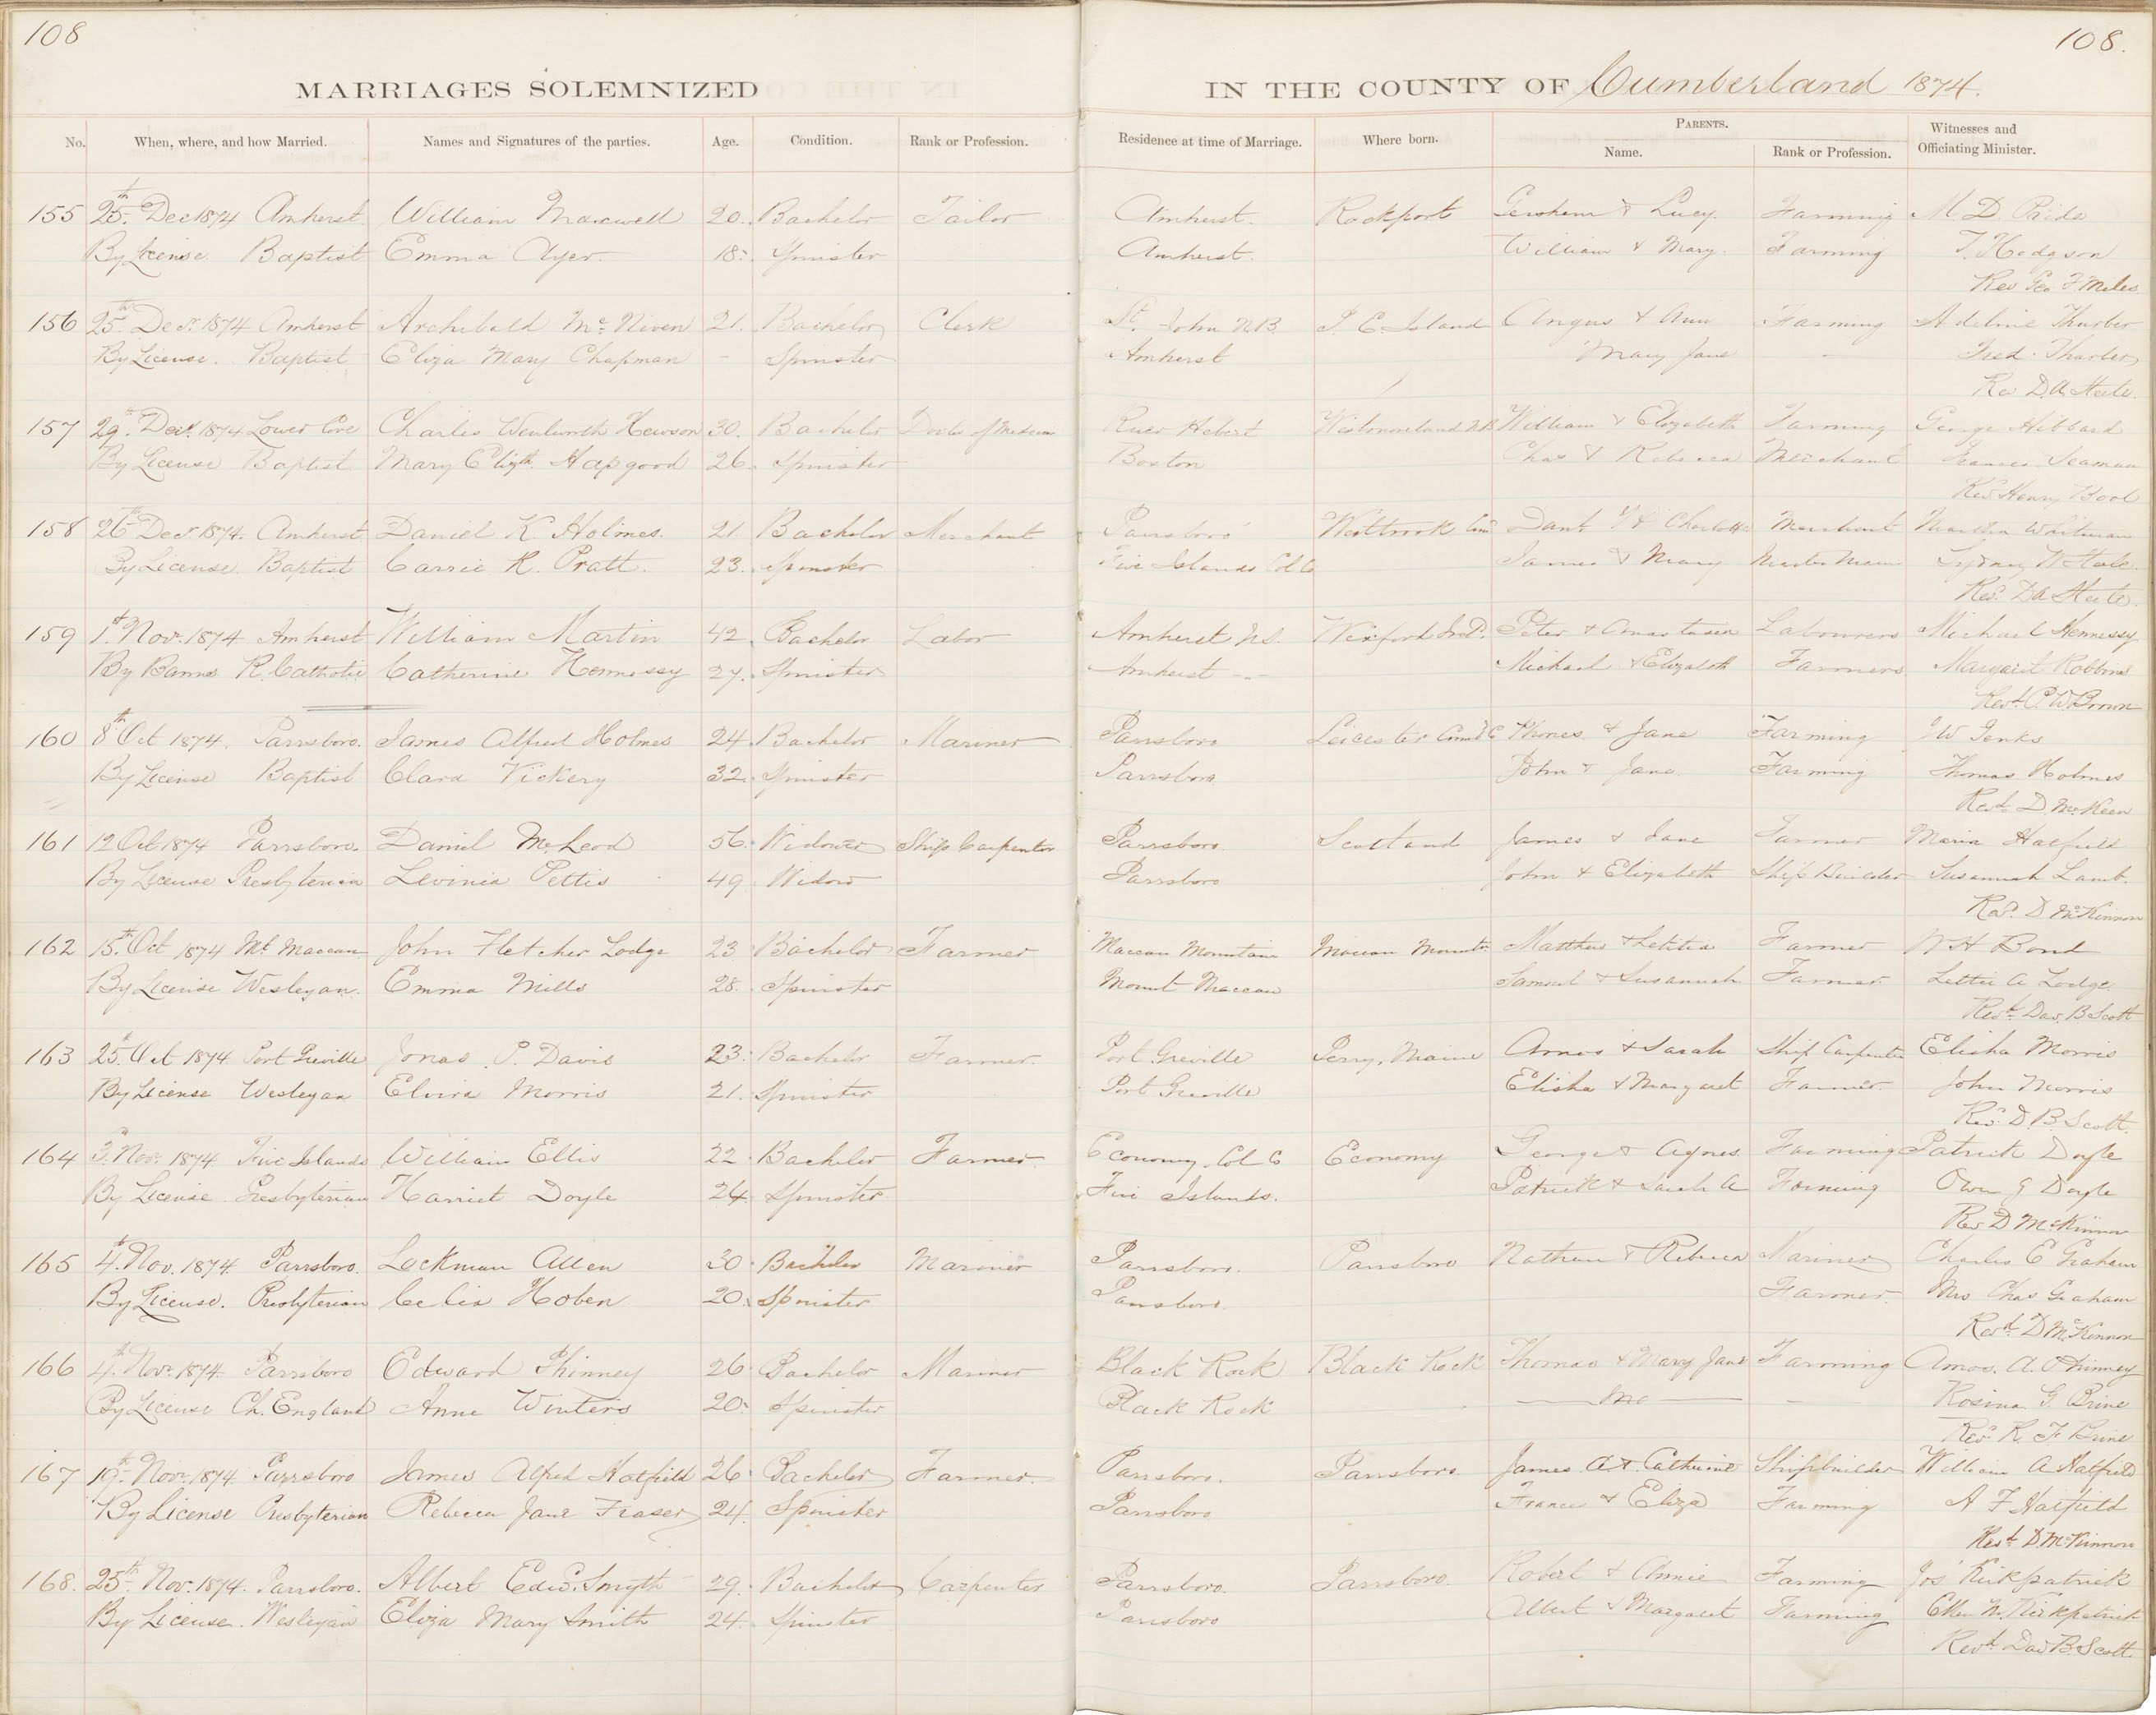 108
108.
MARRIAGES SOLEMNIZED IN THE COUNTY OF Cumberland 1874.
No. When, where, and how Married. Names and Signatures of the parties. Age. Condition. Rank or Profession. Residence at time of Marriage. Where born. PARENTS. Name. Rank or Profession. Witnesses and Officiating Minister.
155 25th Dec 1874 Amherst William Maxwell 20. Bachelor Tailor Amherst. Rockport Gershom & Lucy Farming M D Pride
By License Baptist Emma Ayer 18. Spinster Amherst. William & Mary. Farming T. Hodgson
Rev Geo F Miles
156 25th Decr 1874 Amherst Archibald McNiven 21. Bachelor Clerk St. John N.B. P. E. Island Angus & Ann Farming Adeline Thurber
By License. Baptist Eliza Mary Chapman - Spinster Amherst Mary Jane - Fred. Thurber
Rev D.A. Steele.
157 29th Decr. 1874 Lower Cove Charles Wentworth Hewson 30. Bachelor Doctor of Medicine River Hebert Westmoreland N.B. William & Elizabeth Farming George Hibbard
By License Baptist Mary Elizth. Hapgood 26. Spinster Boston Chas & Rebecca Merchant Seaman
Rev Henry Bool
158 26th Decr 1874. Amherst Daniel K. Holmes. 21. Bachelor Merchant Parrsboro Westbrook Cum Danl & Charlotte Merchant Martha Whitman
By License. Baptist Carrie R. Pratt. 23. Spinster Five Islands Col Co James & Mary Master Sydney W Steele.
Rev. D A Steele.
159 1st Nov. 1874 Amherst William Martin 42. Bachelor Labor Amherst N.S. Wexford Ireld. Peter & Anastasia Labourers Michael Hennessy
By Banns R. Catholic Catherine Hennessy 27. Spinster Amherst -- Michael & Elizabeth Farmers Margaret Robbins
Revd. P. W. Brown
160 8th Oct 1874. Parrsboro. James Alfred Holmes 24. Bachelor Mariner Parrsboro Leicester Cumd C & Jane Farming J W Jenks
By License Baptist Clara Vickery 32. Spinster Parrsboro John & Jane. Farming Thomas Holmes
Revd. D McKeen
161 12 Oct 1874 Parrsboro. Daniel McLeod 56. Widower Ship Carpenter Parrsboro. Scotland James & Jane Farmer Maria Hatfield
By License Presbyterian Levinia Pettis 49 Widow Parrsboro John & Elizabeth Ship Builder Susannah Lamb.
Revd. D. McKinnon
162 15th Oct 1874 Mt. Maccan John Fletcher Lodge 23 Bachelor Farmer Maccan Mountain Maccan Mountn Matthew & Letitia Farmer W H Bond
By License Wesleyan. Emma Mills 28. Spinster Mount Maccan Samuel & Susannah Farmer. Lettie A Lodge.
Revd. Dav. B Scott
163 25th Oct 1874. Port Greville Jonas P. Davis 23. Bachelor Farmer. Port Greville Perry, Maine Amos & Sarah Ship Carpenter Elisha Morris
By License Wesleyan Elvira Morris 21. Spinster Port Greville Elisha & Margaret Farmer. John Morris
Rev. D. B. Scott.
164 3d. Nov. 1874 Five Islands William Ellis 22. Bachelor Farmer Economy, Col C Economy George & Agnes Farming Patrick Doyle
By License Presbyterian Harriet Doyle 24 Spinster Five Islands. Patrick & Sarah A Farming Owen J Doyle
Rev D McKinnon
165 4th Nov. 1874. Parrsboro. Lockman Allen 30. Bachelor Mariner Parrsboro. Parrsboro Nathan & Rebecca Mariner Charles E Graham
By License. Presbyterian Celia Hoben 20. Spinster Parrsboro. Farmer. Mrs Chas Graham
Revd. D McKinnon
166 4th Nov 1874. Parrsboro Edward Phinney 26. Bachelor Mariner Black Rock Black Rock Thomas & Mary Jane Farming Amos. A. Phinney
By License Ch. England Anne Winters 20. Spinster Black Rock Rosina G. Brine
Revd. R. F Brine
167 19th Nov. 1874. Parrsboro James Alfred Hatfield 26. Bachelor Farmer. Parrsboro. Parrsboro. James A. & Catherine Shipbuilder William A Hatfield
By License Presbyterian Rebecca Jane Fraser 24. Spinster Parrsboro Francis & Eliza Farming A F Hatfield
Revd. D. McKinnon
168. 25th Nov. 1874. Parrsboro. Albert Edwd. Smyth 29. Bachelor Carpenter Parrsboro. Parrsboro. Robert & Annie Farming Jos Kirkpatrick
By License. Wesleyan Eliza Mary Smith 24. Spinster Parrsboro Albert & Margaret Farming Kirkpatrick
Revd. Dav B. Scott